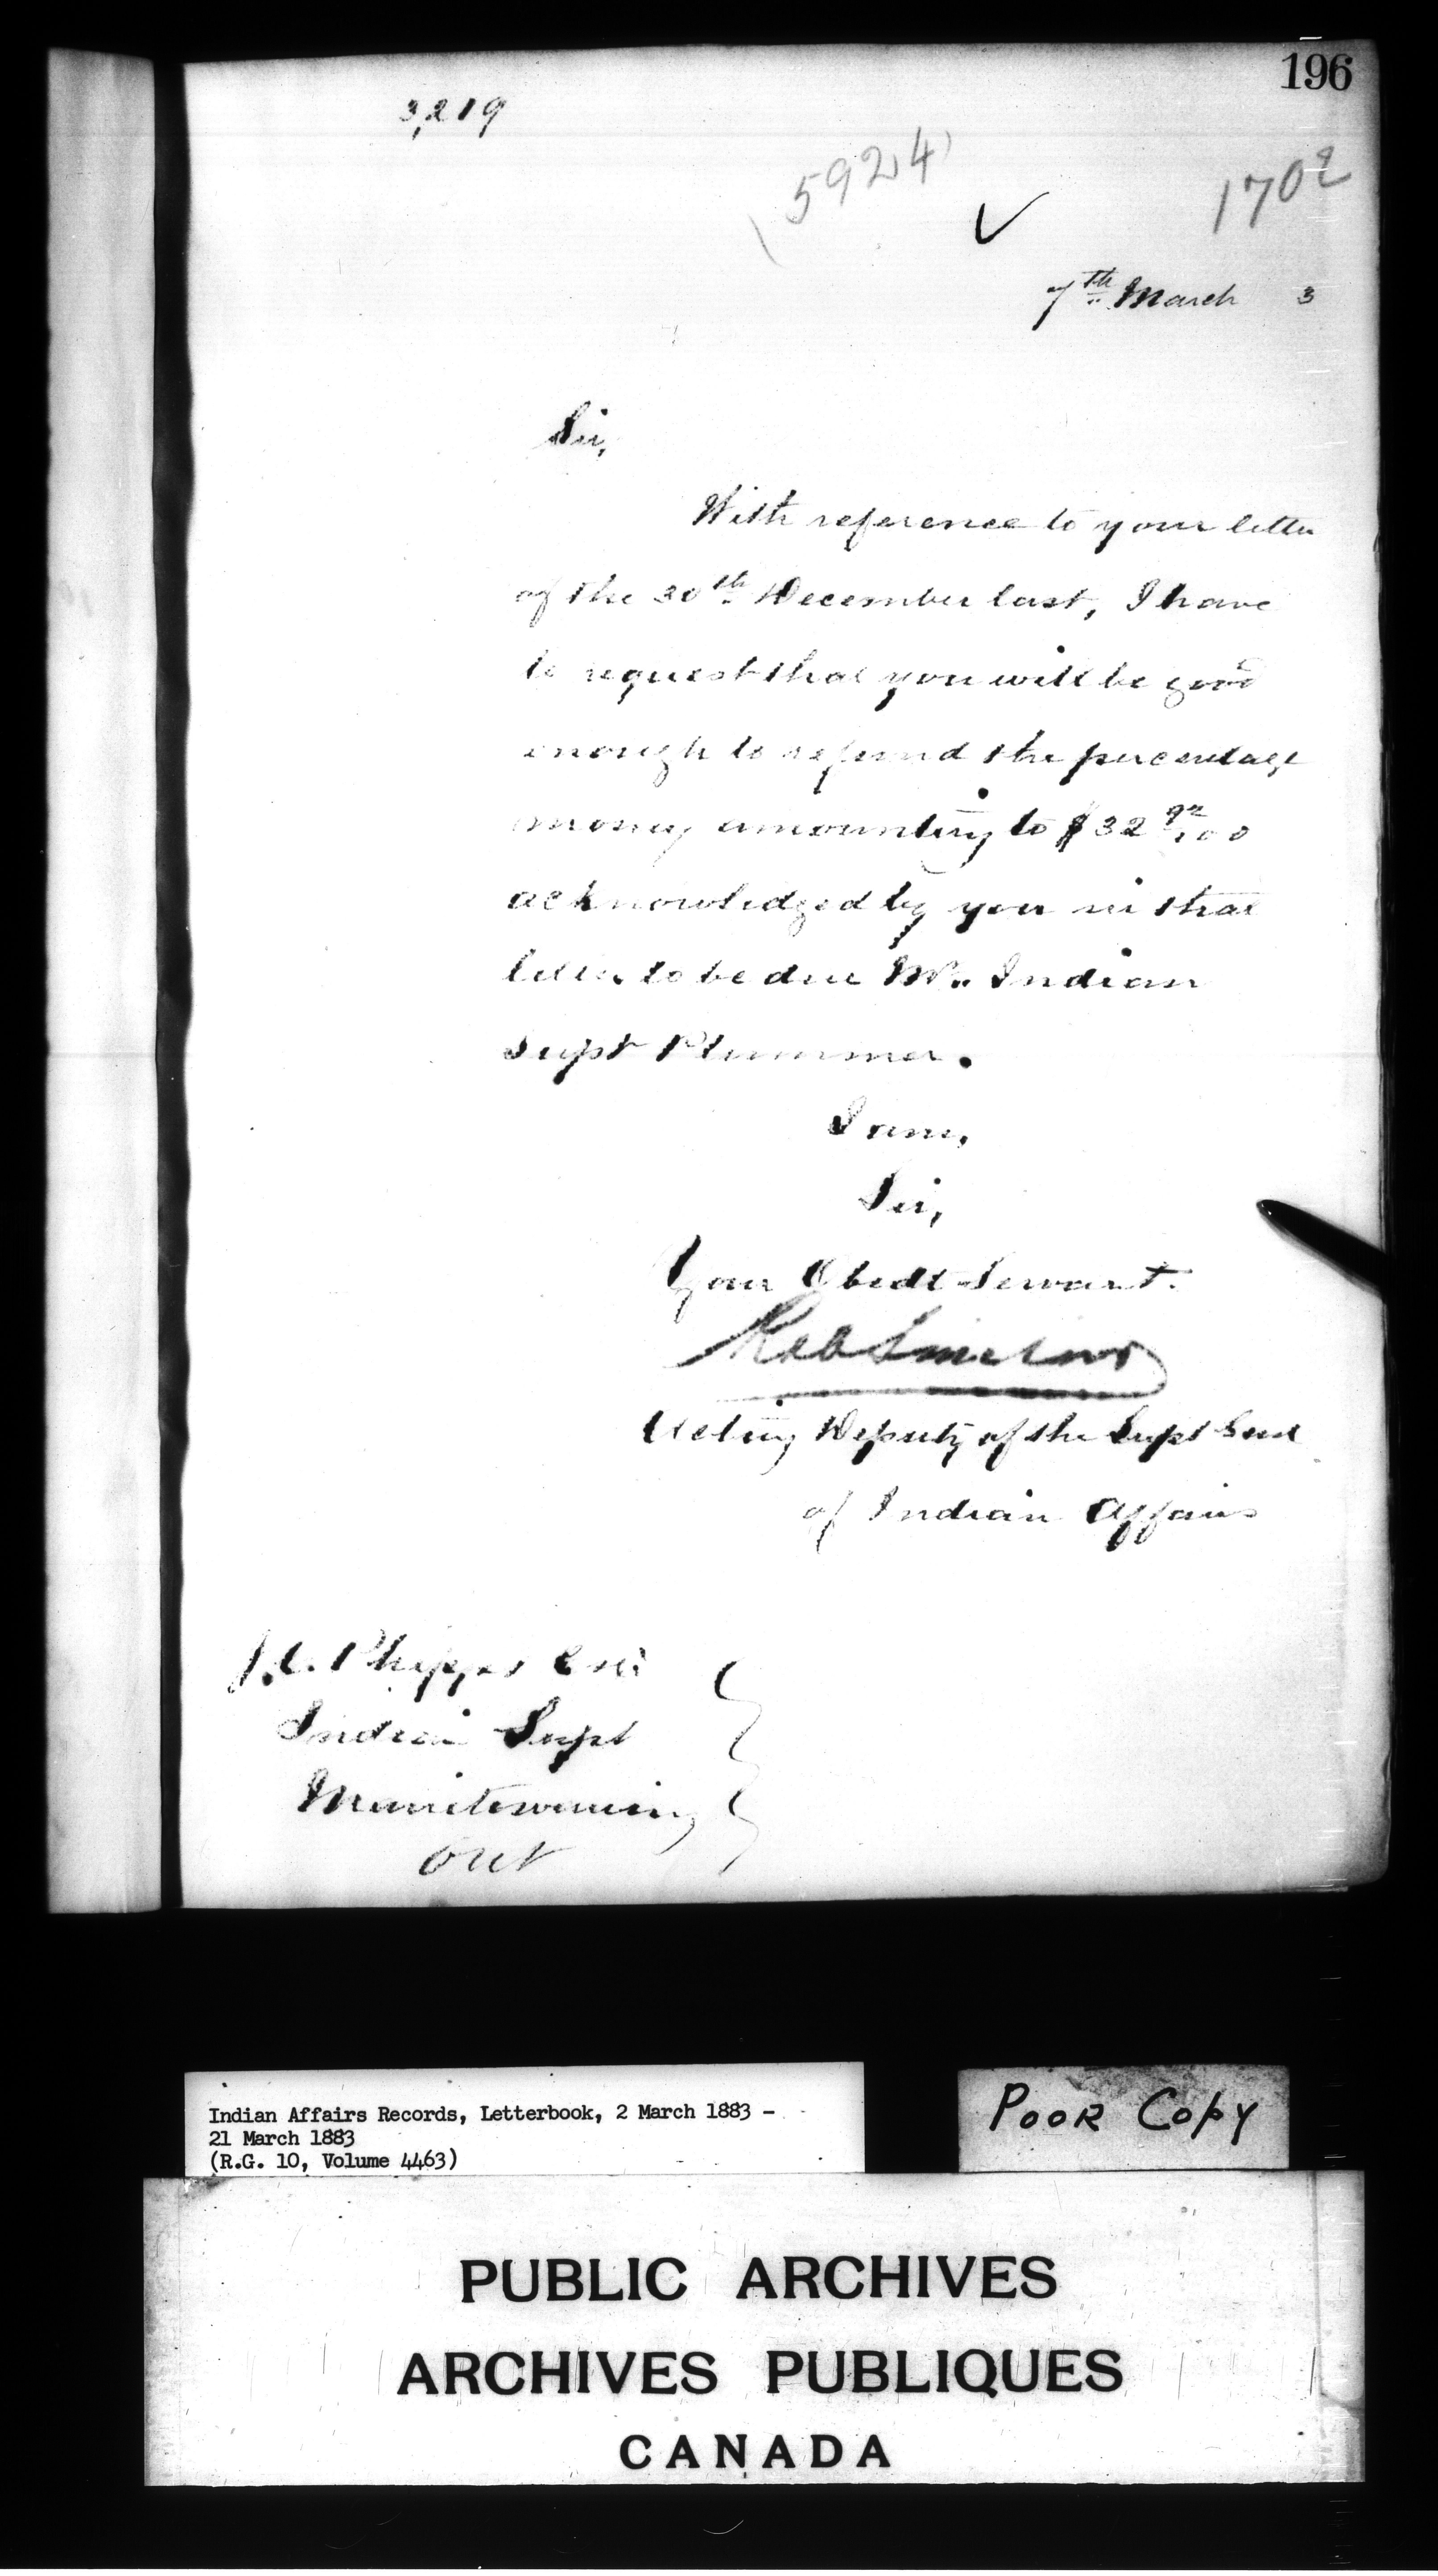 196
3,219
5924
1702
7th March 3
Sir,
With reference to your letter
of the 20th December last, I have
to request that you will be good
enough to refund the percentage
money amounting to $32 92/100
acknowledged by you in that
letter to be due Mr. Indian
Supt Plummer.
I am,
Sir,
Your Obedt Servant.
Acting Deputy of the Supt Genl
of Indian Affairs
J.C. Phipps Esq
Indian Supt
Manitowaning
Ont
Indian Affairs Records, Letterbook, 2 March 1883 -
21 March 1883
(R.G. 10, Volume 4463)
POOR COPY
PUBLIC ARCHIVES
ARCHIVES PUBLIQUES
CANADA